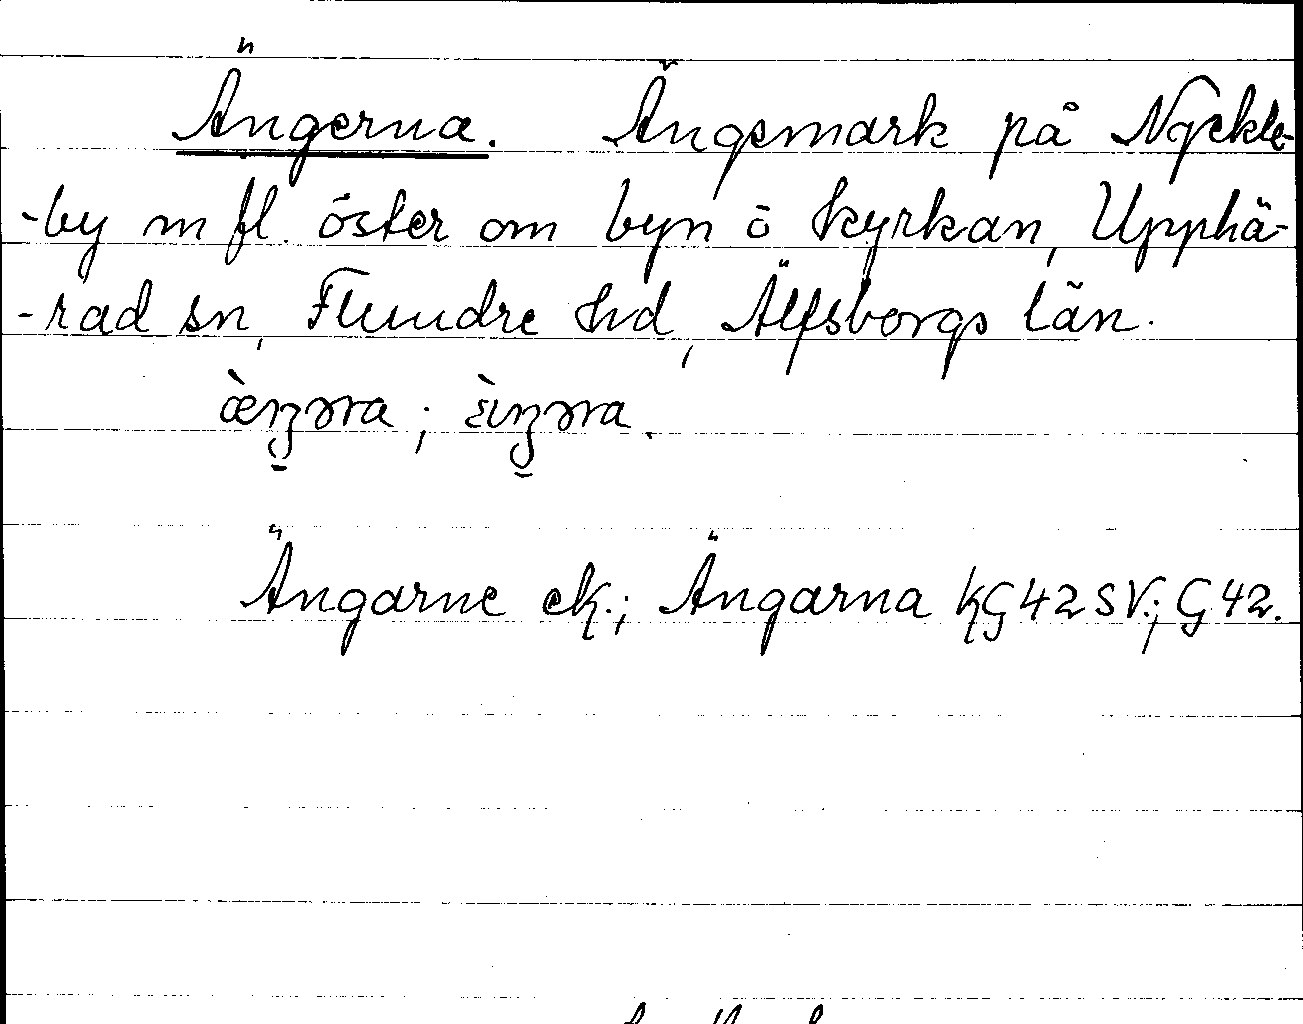 Ängerna. Ängsmark på Nyckle-
-by m fl. öster om byn ö kyrkan, Upphä-
-rad sn, Flundre hd, Älfsborgs län.
Ängarne ek.; Ängarna KG42SV.; G42.